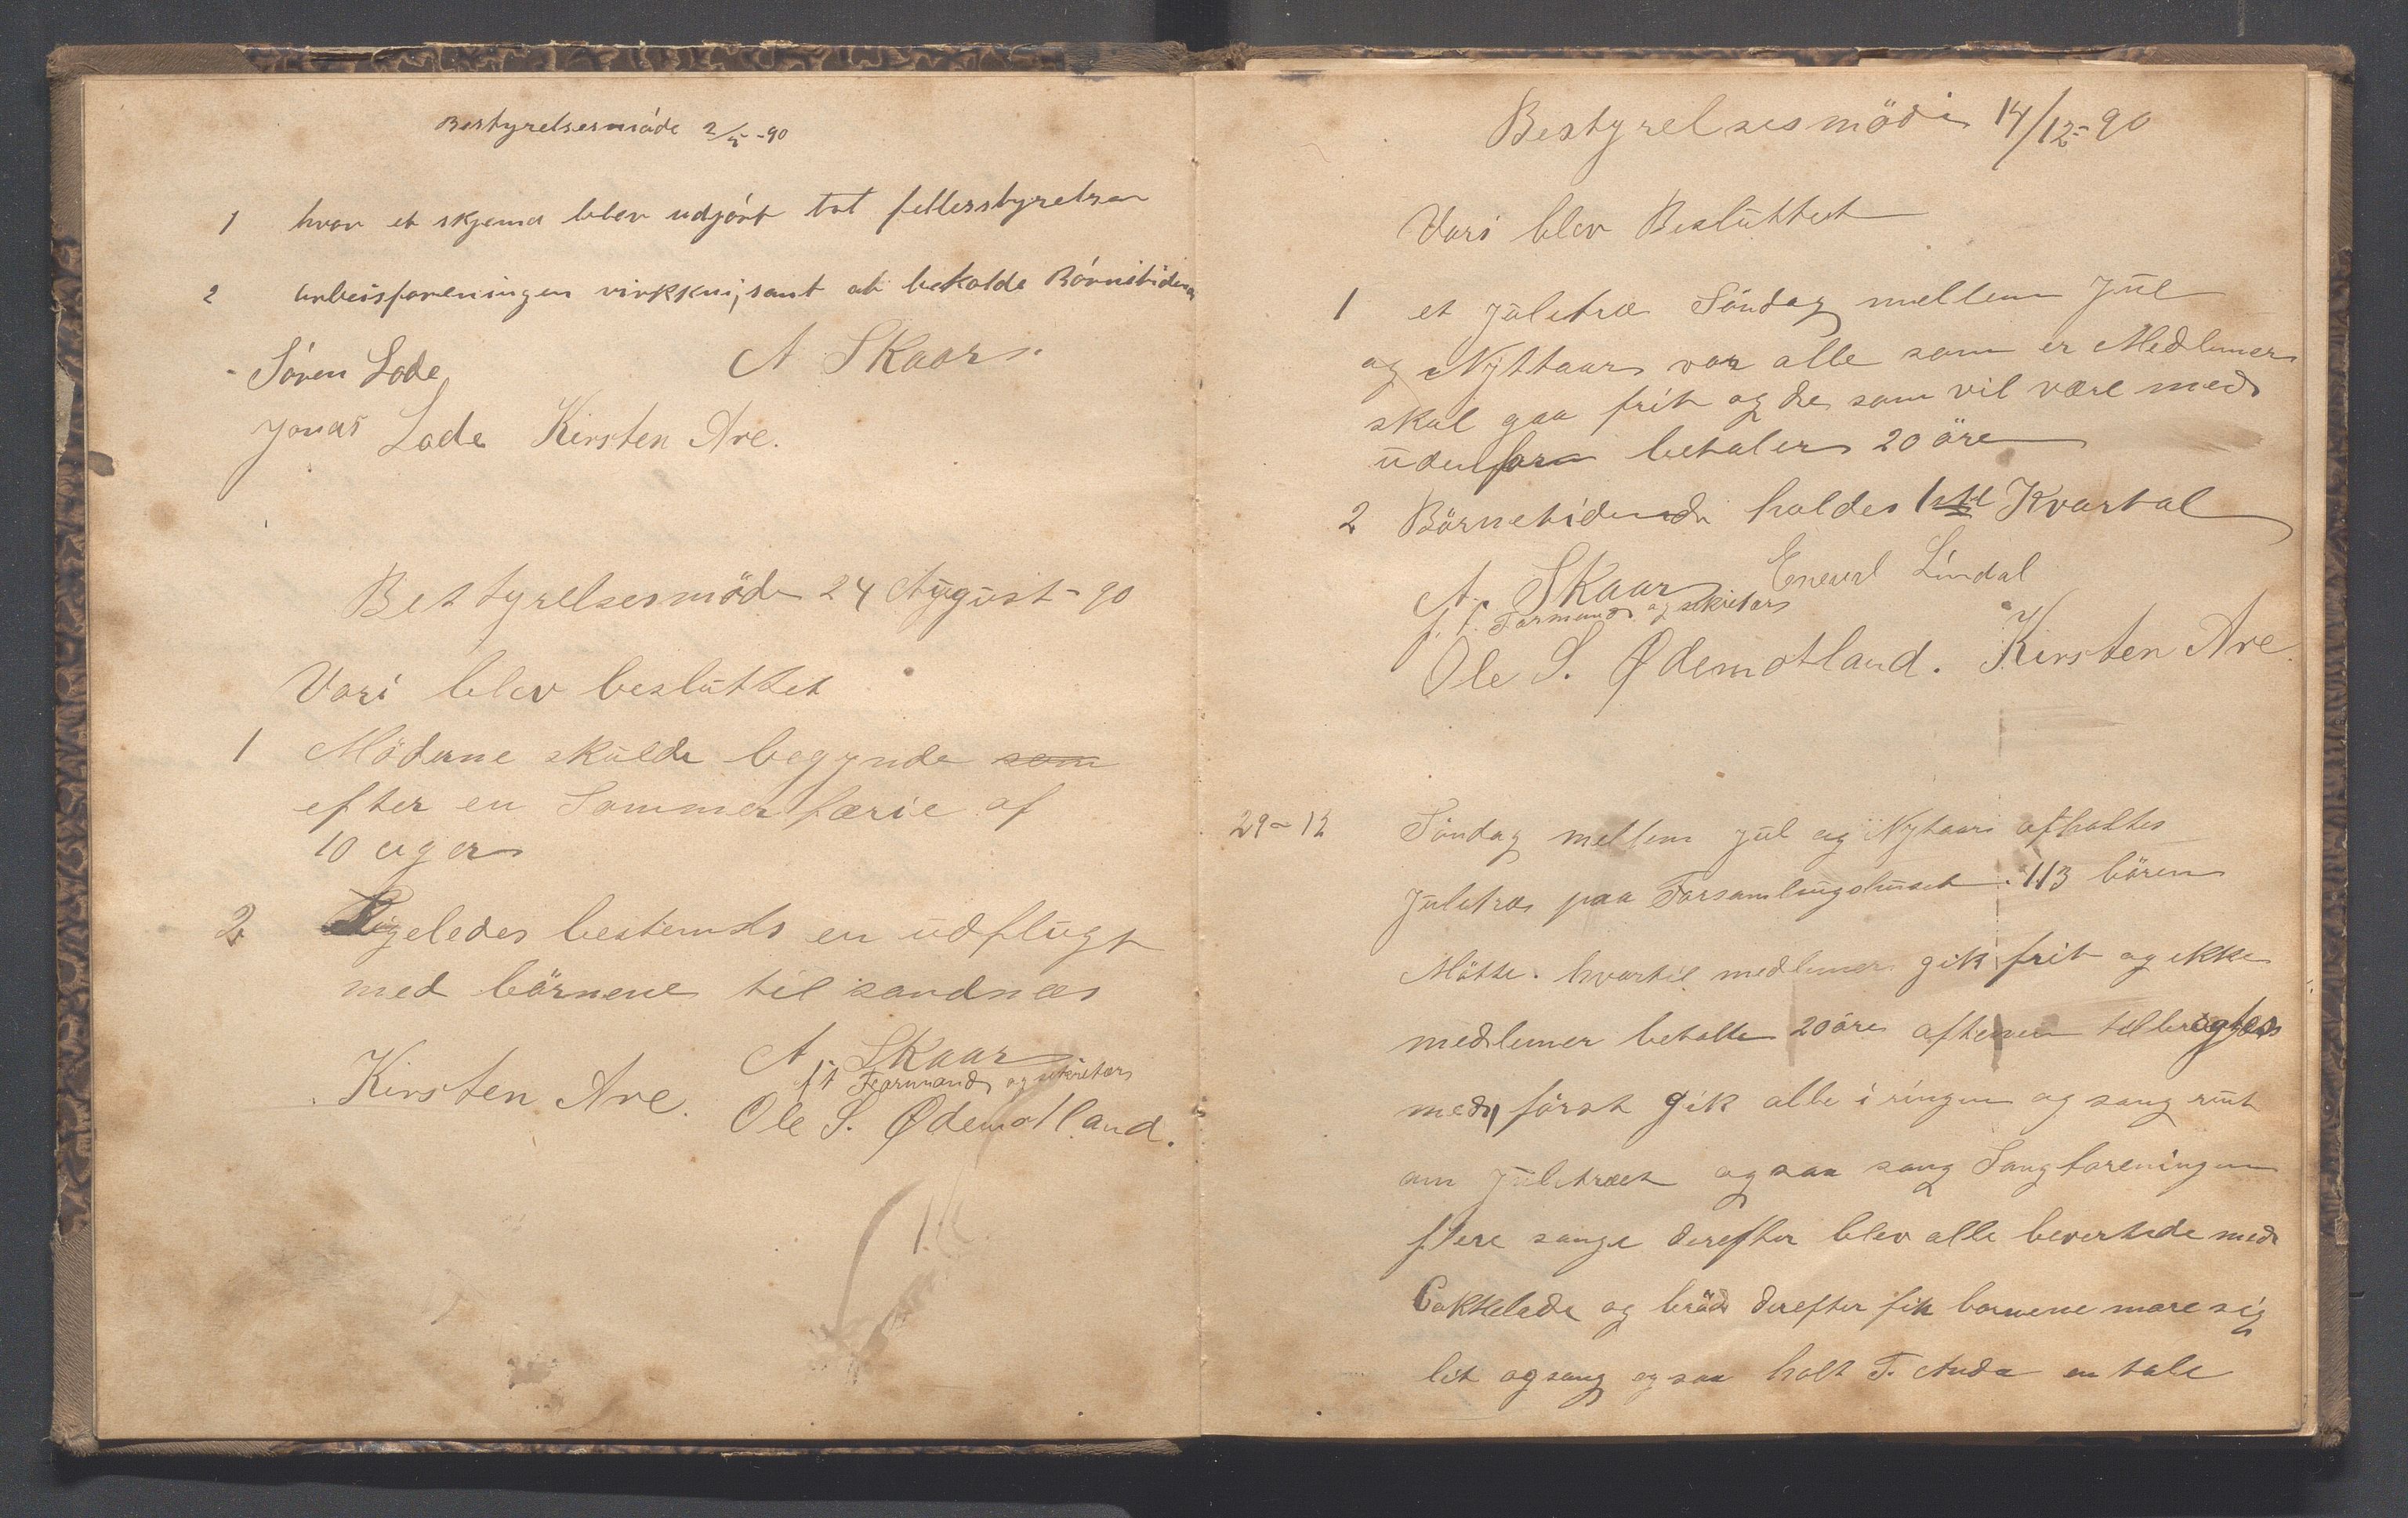 Bestyrelsesmóde 2/5-90
1 hvor et skjema blev udgjórt tel fellesstyrelsen
2 arbeisforeningen virkkni, samt at bekolde Bórnetidende
Sóren Lode A Skaar.
Jonas Lode Kirsten Are.
Bestyrelsesmöde 24 August-90
Vori blev besluttet
1 Möderne skulde begynde som
efter en Sommerfærie af
10 uger
2 Ligeledes bestemds en udflugt
med börnene til sandnæs
A. Skaar
ft Formand og sekretær
Kirsten Are. Ole S. Ødemotland.
Bestyrelsesmöde 14/12-90
Vori blev Besluttet
1 et juletræ Söndag mellem Jul
og Nyttaar vor alle som er Medlemer
skal gaa frit og de som vil være med
udenfor betaler 20 öre
2 Börnetidende holdes 1ste Kvartal
A. Skaar Eneval Lindal
f. t. Formand og sekretær
Ole S. Ødemotland. Kirsten Are.
29-12 Söndag mellem jul og Nytaar afholtes
Juletræ paa Forsamlingshuset. 113 bören
Mötte. hvortil medlemer gik frit og ikke
medlemer betalte 20 öre aftenen tilbragtes
med, först gik alle i ringen og sang runt
om juletræet og saa sang Sangforeningen
flere sange derefter blev alle bevertede med
Cokkelade og bröd derefter fik bornene more sig
lit og sang og saa holt T. Anda en tale